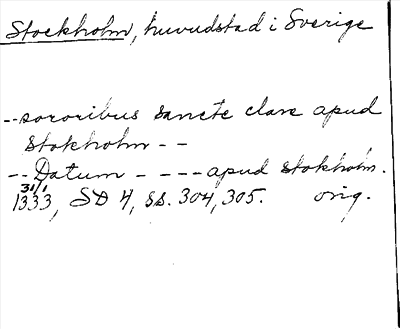 Stockholm, huvudstad i Sverige
--sororibus sancte clare apud
Stokholm --
-- Datum - ---apud stokholm.
31/1
1333, SD 4, ss. 304, 305. orig.